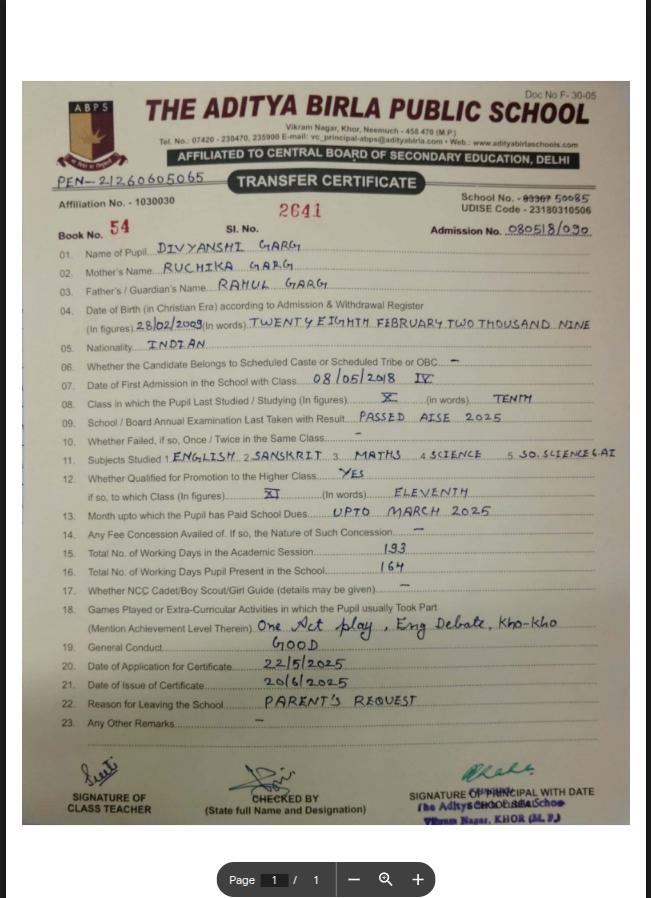 Doc No F- 30-05
ABPS
THE ADITYA BIRLA PUBLIC SCHOOL
Vikram Nagar, Khor, Neemuch - 458 470 (M.P.)
Tel. No.: 07420 - 230470, 235900 E-mail: vc_principal-abps@adityabirla.com • Web.: www.adityabirlaschools.com
AFFILIATED TO CENTRAL BOARD OF SECONDARY EDUCATION, DELHI
PEN- 21260605065
TRANSFER CERTIFICATE
Affiliation No. - 1030030
School No. - 03367 50085
UDISE Code - 23180310506
Book No. 54
Sl. No. 2641
Admission No. 080518/090
01. Name of Pupil DIVYANSHI GARG
02. Mother's Name RUCHIKA GARG
03. Father's / Guardian's Name RAHUL GARG
04. Date of Birth (in Christian Era) according to Admission & Withdrawal Register
(In figures) 28/02/2009 (In words) TWENTY EIGHTH FEBRUARY TWO THOUSAND NINE
05. Nationality INDIAN
06. Whether the Candidate Belongs to Scheduled Caste or Scheduled Tribe or OBC –
07. Date of First Admission in the School with Class 08/05/2018 IV
08. Class in which the Pupil Last Studied / Studying (In figures) X (in words) TENTH
09. School / Board Annual Examination Last Taken with Result PASSED AISE 2025
10. Whether Failed, if so, Once / Twice in the Same Class –
11. Subjects Studied 1 ENGLISH 2 SANSKRIT 3 MATHS 4 SCIENCE 5 SO. SCIENCE 6. AI
12. Whether Qualified for Promotion to the Higher Class YES
if so, to which Class (In figures) XI (In words) ELEVENTH
13. Month upto which the Pupil has Paid School Dues UPTO MARCH 2025
14. Any Fee Concession Availed of. If so, the Nature of Such Concession –
15. Total No. of Working Days in the Academic Session 193
16. Total No. of Working Days Pupil Present in the School 164
17. Whether NCC Cadet/Boy Scout/Girl Guide (details may be given) –
18. Games Played or Extra-Curricular Activities in which the Pupil usually Took Part
(Mention Achievement Level Therein) One Act play, Eng Debate, Kho-Kho
19. General Conduct GOOD
20. Date of Application for Certificate 22/5/2025
21. Date of Issue of Certificate 20/6/2025
22. Reason for Leaving the School PARENT'S REQUEST
23. Any Other Remarks –
SIGNATURE OF
CLASS TEACHER
CHECKED BY
(State full Name and Designation)
SIGNATURE OF PRINCIPAL WITH DATE
SCHOOL SEAL
Vikram Nagar, KHOR (M.P.)
Page 1 / 1